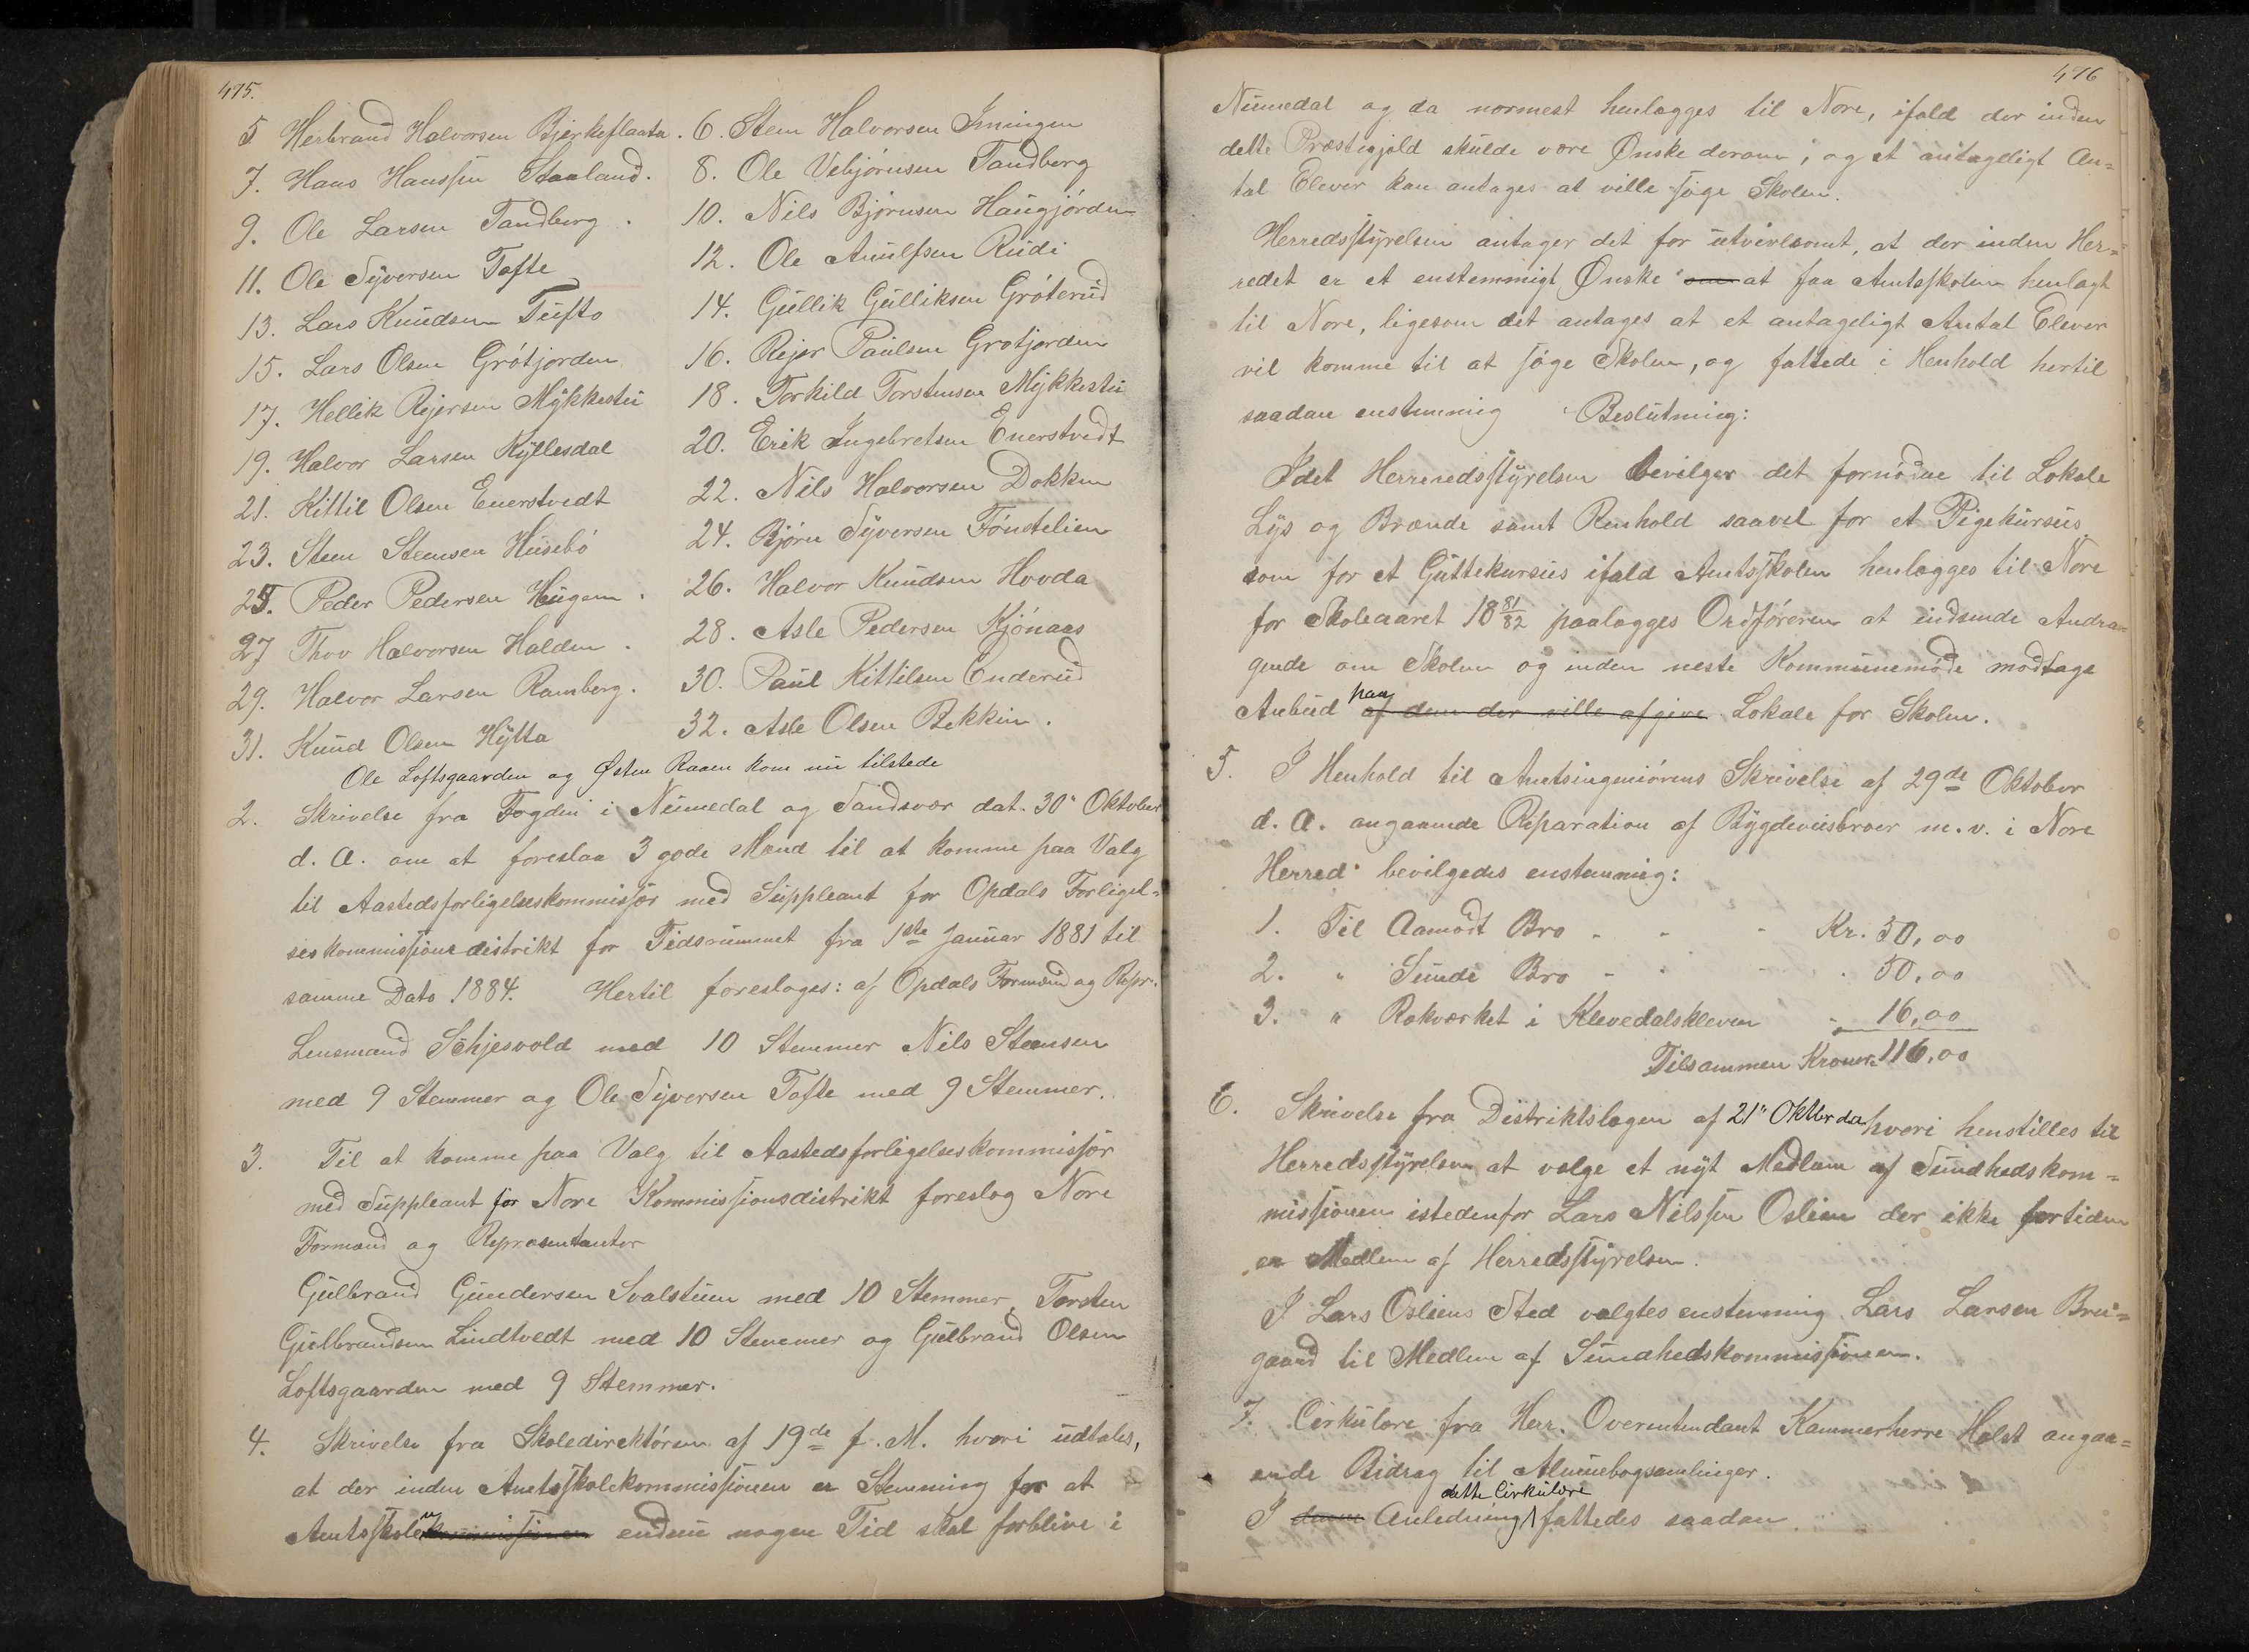 475.
5 Herbrand Halvorsen Bjerkeflaata. 6. Sten Halvorsen Imingen
7. Hans Hanssen Staaland. 8. Ole Vebjørnsen Tandberg
9. Ole Larsen Tandberg. 10. Nils Bjørnsen Haugjorden
11. Ole Syversen Tofte 12. Ole Anulfsen Rudi
13. Lars Knudsen Tufto 14. Gullik Gulliksen Grøterud
15. Lars Olsen Grótjorden 16. Rejer Paulsen Grotjorden
17. Hellik Rejersen Mykkestu 18. Torkild Torstensen Mykkestu
19. Halvor Larsen Kyllesdal 20. Erik Ingebretsen Enerstvedt
21. Kittil Olsen Enerstvedt 22. Nils Halvorsen Dokken
23. Steen Stensen Husebó 24. Bjørn Syversen Fónstelien
25. Peder Pedersen Haugen. 26. Halvor Knudsen Hovda
27 Thov Halvorsen Halden. 28. Asle Pedersen Kjónaas
29. Halvor Larsen Ramberg. 30. Paul Kittilsen Enderud
31. Knud Olsen Hytta 32. Asle Olsen Bekkin.
Ole Loftsgaarden og Østen Raaen kom nu tilstede
2. Skrivelse fra Fogden i Numedal og Sandsvær dat. 30" Oktober
d. A. om at foreslaa 3 gode Mænd til at komme paa Valg
til Aastedsforligelseskommissær med Suppleant for Opdals Forligel-
seskommissionsdistrikt for Tidsrummet fra 1ste Januar 1881 til
samme Dato 1884. Hertil foresloges: af Opdals Formænd og Repr.
Lensmand Schjesvold med 10 Stemmer Nils Stensen
med 9 Stemmer og Ole Syversen Tofte med 9 Stemmer.
3. Til at komme paa Valg til Aastedsforligelseskommissær
med Suppleant for Nore Kommissionsdistrikt foreslog Nore
Formænd og Repræsentanter
Gulbrand Gundersen Svalstuen med 10 Stemmer, Torsten
Gulbrandsen Lindtvedt med 10 Stemmer og Gulbrand Olsen
Loftsgaarden med 9 Stemmer.
4. Skrivelse fra Skoledirektøren af 19de f. M. hvori udtales,
at der inden Amtsskolekommissionen er Stemning for at
Amtsskolen kommissionen endnu nogen Tid skal forblive i
476
Numedal og da nærmest henlægges til Nore, ifald der inden
dette Præstegjæld skulde være Ønske derom, og et antageligt An-
tal Elever kan antages at ville søge Skolen.
Herredsstyrelsen antager det for utvivlsomt, at der inden Her-
redet er et enstemmigt Ønske om at faa Amtsskolen henlagt
til Nore, ligesom det antages at et antageligt Antal Elever
vil komme til at søge Skolen, og fattede i Henhold hertil
saadan enstemmig Beslutning:
Idet Herreredsstyrelsen bevilger det fornødne til Lokale
Lys og Brænde samt Renhold saavel for et Pigekursus
som for et Guttekursus ifald Amtsskolen henlægges til Nore
for Skoleaaret 18 81/82 paalægges Ordføreren at indsende Andra-
gende om Skolen og inden neste Kommunemøde modtage
Anbud paa af dem der ville afgive Lokale for Skolen.
5. I Henhold til Amtsingeniørens Skrivelse af 29de Oktober
d. A. angaaende Reparation af Bygdeveisbroer m.v. i Nore
Herred bevilgedes enstemmig:
1. Til Aamodt Bro - - - Kr. 50,00
2. " Sunde Bro - - - 50,00
3. " Rækværket i Klevedalskleven - 16,00
Tilsammen Kroner 116,00
6. Skrivelse fra Distriktslægen af 21" Oktbr da hvori henstilles til
Herredsstyrelsen at vælge et nyt Medlem af Sundhedskom-
missionen istedenfor Lars Nilssen Oslien der ikke fortiden
er Medlem af Herredsstyrelsen.
I Lars Osliens Sted valgtes enstemmig Lars Larsen Brei-
gaard til Medlem af Sundhedskommissionen.
7. Cirkulære fra Herr. Overintendant Kammerherre Holst angaa-
ende Bidrag til Almuebogsamlinger.
I denne Anledning dette Cirkulære fattedes saadan